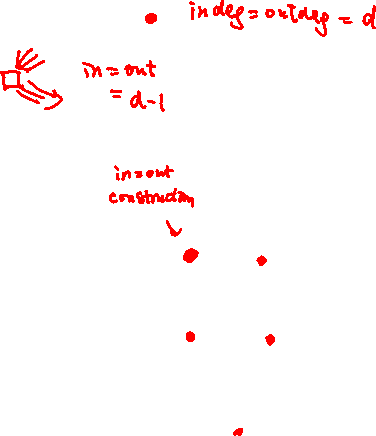 indeg = outdeg = d
in = out
= d-1
in = out
construction